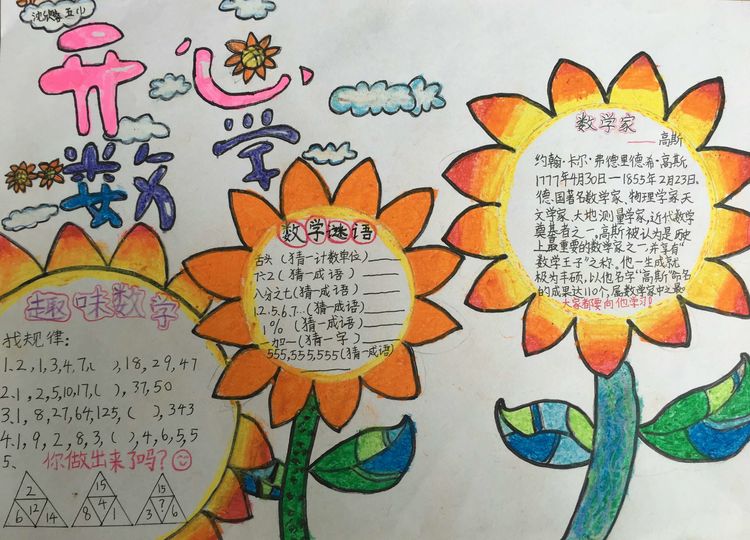 开心
数学
趣味数学
找规律:
1.2,1,3,4,7,( ),18,29,47
2.1,2,5,10,17,( ),37,50
3.1,8,27,64,125,( ),343
4.1,9,2,8,3,( ),4,6,5,5
5、 你做出来了吗?
2
6 12 14
15
8 4 1
15
3 ? 6
数学谜语
舌头(猜一计数单位)
(猜一成语)
八分之七(猜一成语)
1.2.5.6.7...(猜一成语)
1%(猜一成语)
一加一(猜一字)
555,555,555(猜一成语)
数学家
——高斯
约翰·卡尔·弗德里德希·高斯
1777年4月30日—1855年2月23日、
德国著名数学家、物理学家、天
文学家、大地测量学家,近代数学
奠基者之一,高斯被认为是历史
上最重要的数学家之一,并享有“
数学王子”之称。他一生成就
极为丰硕,以他名字“高斯”命名
的成果达110个,属数学家中之最。
大家都要向他学习!